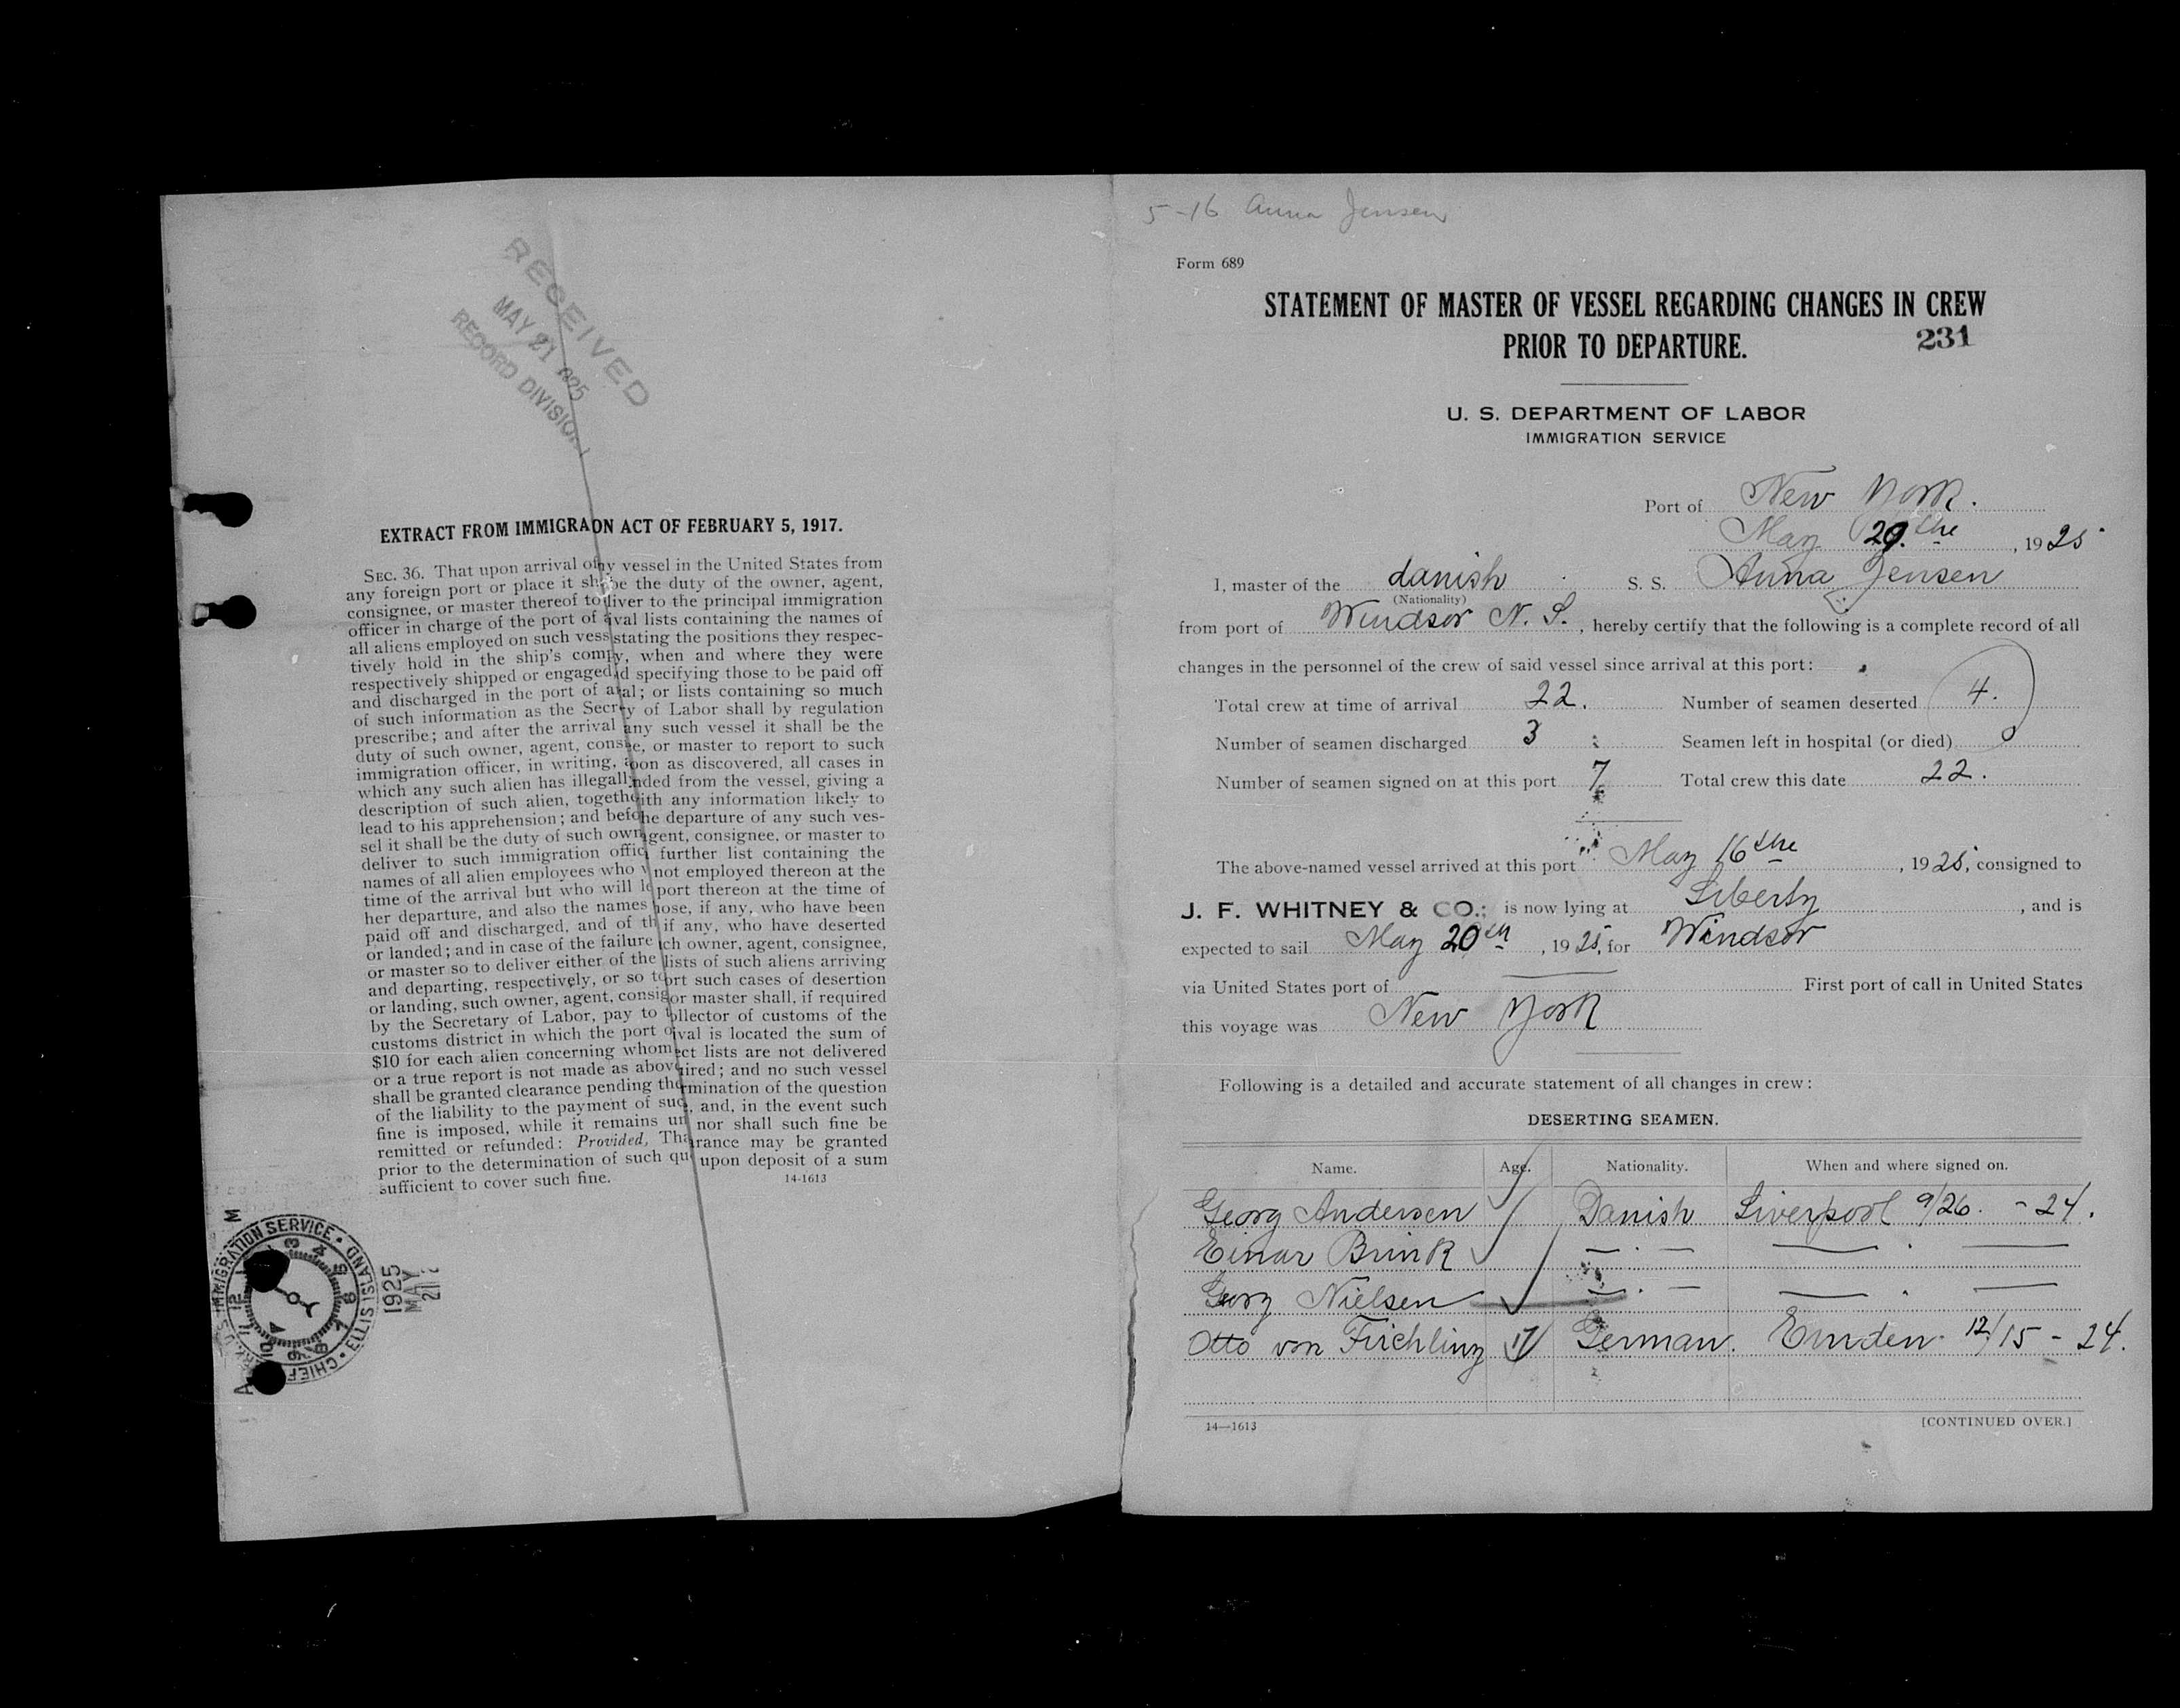 RECEIVED
MAY 21 1925
RECORD DIVISION
EXTRACT FROM IMMIGRA ON ACT OF FEBRUARY 5, 1917.
SEC. 36. That upon arrival of ny vessel in the United States from
any foreign port or place it sh be the duty of the owner, agent,
consignee, or master thereof to liver to the principal immigration
officer in charge of the port of ival lists containing the names of
all aliens employed on such vess stating the positions they respec-
tively hold in the ship's comp y, when and where they were
respectively shipped or engaged d specifying those to be paid off
and discharged in the port of a al; or lists containing so much
of such information as the Secr y of Labor shall by regulation
prescribe; and after the arrival any such vessel it shall be the
duty of such owner, agent, cons e, or master to report to such
immigration officer, in writing, oon as discovered, all cases in
which any such alien has illegall nded from the vessel, giving a
description of such alien, togeth ith any information likely to
lead to his apprehension; and befo he departure of any such ves-
sel it shall be the duty of such own gent, consignee, or master to
deliver to such immigration offic further list containing the
names of all alien employees who w not employed thereon at the
time of the arrival but who will le port thereon at the time of
her departure, and also the names hose, if any, who have been
paid off and discharged, and of th if any, who have deserted
or landed; and in case of the failure ch owner, agent, consignee,
or master so to deliver either of the lists of such aliens arriving
and departing, respectively, or so to ort such cases of desertion
or landing, such owner, agent, consig or master shall, if required
by the Secretary of Labor, pay to ollector of customs of the
customs district in which the port o ival is located the sum of
$10 for each alien concerning whom ect lists are not delivered
or a true report is not made as above ired; and no such vessel
shall be granted clearance pending the rmination of the question
of the liability to the payment of suc , and, in the event such
fine is imposed, while it remains un nor shall such fine be
remitted or refunded: Provided, Tha rance may be granted
prior to the determination of such qu upon deposit of a sum
sufficient to cover such fine.
14-1613
U.S. IMMIGRATION SERVICE
CHIEF
ELLIS ISLAND
1925
MAY
21
5-16 Anna Jensen
Form 689
STATEMENT OF MASTER OF VESSEL REGARDING CHANGES IN CREW
PRIOR TO DEPARTURE.
231
U. S. DEPARTMENT OF LABOR
IMMIGRATION SERVICE
Port of New York.
May 20.the, 1925
I, master of the danish S. S. Anna Jensen
(Nationality)
from port of Windsor N. S., hereby certify that the following is a complete record of all
changes in the personnel of the crew of said vessel since arrival at this port:
Total crew at time of arrival 22. Number of seamen deserted 4.
Number of seamen discharged 3 Seamen left in hospital (or died) 0
Number of seamen signed on at this port 7 Total crew this date 22.
The above-named vessel arrived at this port May 16the, 1925, consigned to
J. F. WHITNEY & CO.; is now lying at Liberty, and is
expected to sail May 20th, 1925, for Windsor
via United States port of — First port of call in United States
this voyage was New York
Following is a detailed and accurate statement of all changes in crew:
DESERTING SEAMEN.
Name. Age. Nationality. When and where signed on.
Georg Andersen Danish Liverpool 9/26. - 24.
Einar Brink — . — — . —
Georg Nielsen — . — — . —
Otto von 17 German. Emden. 12/15 - 24.
14—1613
[CONTINUED OVER.]